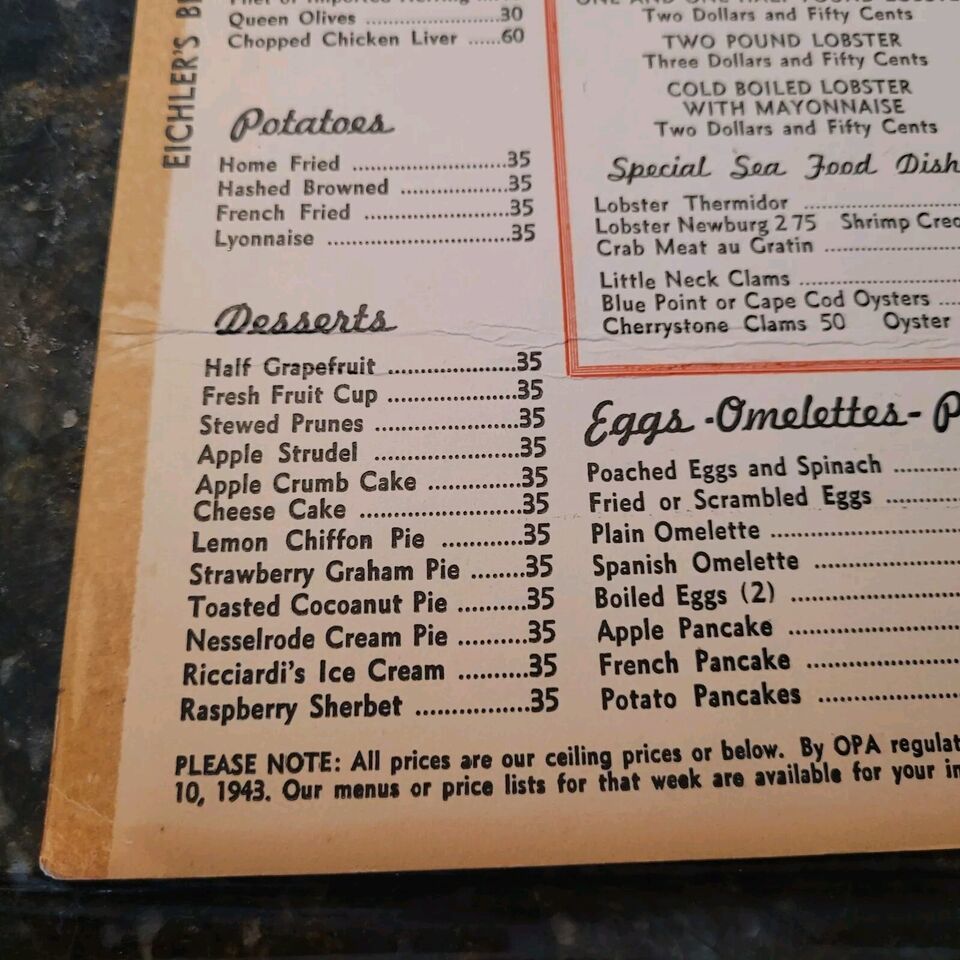 EICHLER'S
Queen Olives ......30
Chopped Chicken Liver ......60
Potatoes
Home Fried ......35
Hashed Browned ......35
French Fried ......35
Lyonnaise ......35
Desserts
Half Grapefruit ......35
Fresh Fruit Cup ......35
Stewed Prunes ......35
Apple Strudel ......35
Apple Crumb Cake ......35
Cheese Cake ......35
Lemon Chiffon Pie ......35
Strawberry Graham Pie ......35
Toasted Cocoanut Pie ......35
Nesselrode Cream Pie ......35
Ricciardi's Ice Cream ......35
Raspberry Sherbet ......35
Two Dollars and Fifty Cents
TWO POUND LOBSTER
Three Dollars and Fifty Cents
COLD BOILED LOBSTER
WITH MAYONNAISE
Two Dollars and Fifty Cents
Special Sea Food Dish
Lobster Thermidor ......
Lobster Newburg 2 75 Shrimp Creo
Crab Meat au Gratin ......
Little Neck Clams ......
Blue Point or Cape Cod Oysters ....
Cherrystone Clams 50 Oyster
Eggs - Omelettes - P
Poached Eggs and Spinach ......
Fried or Scrambled Eggs ......
Plain Omelette ......
Spanish Omelette ......
Boiled Eggs (2) ......
Apple Pancake ......
French Pancake ......
Potato Pancakes ......
PLEASE NOTE: All prices are our ceiling prices or below. By OPA regulat
10, 1943. Our menus or price lists for that week are available for your in